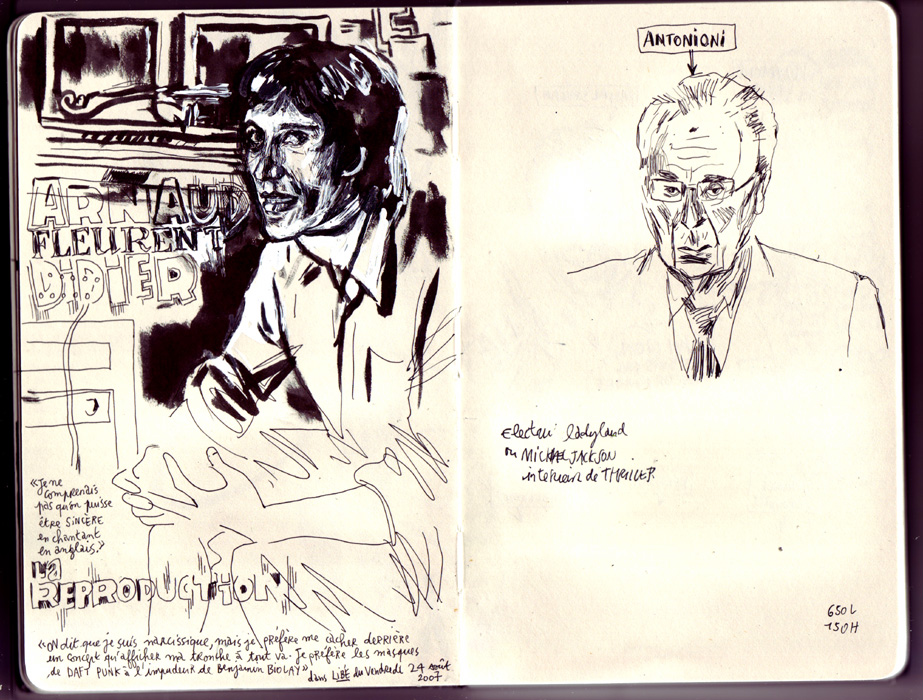 ARNAUD
FLEURENT
DIDIER
«Je ne
comprends
pas qu'on puisse
être SINCÈRE
en chantant
en anglais.»
LA
REPRODUCTION
«ON dit que je suis narcissique, mais je préfère me cacher DERRIÈRE
un concept qu'afficher ma tronche à tout va. Je préfère les masques
de DAFT PUNK à l'impudeur de Benjamin BIOLAY»
dans LIBÉ du Vendredi 24 août
2007.
ANTONIONI
Electric ladyland
ou MICHAEL JACKSON
interieur de THRILLER.
650L
150H